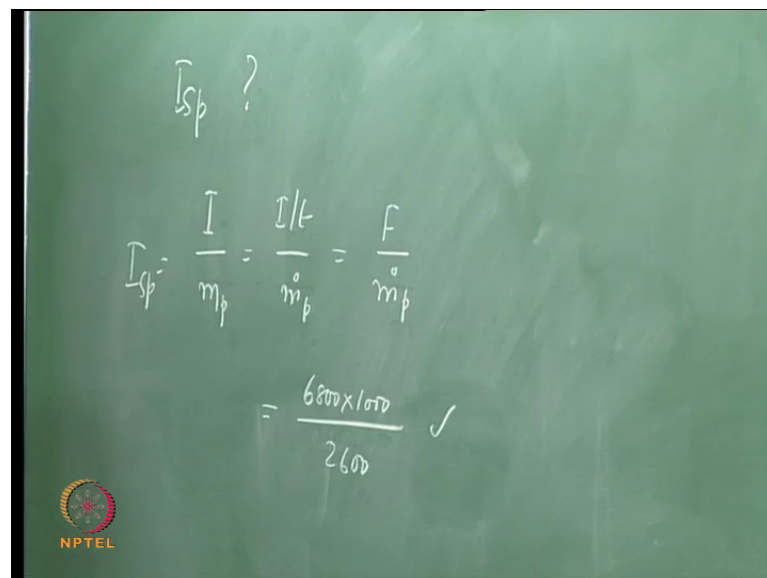 Isp ?
Isp = I / mp = I/t / ṁp = F / ṁp
= 6800×1000 / 2600 ✓
NPTEL